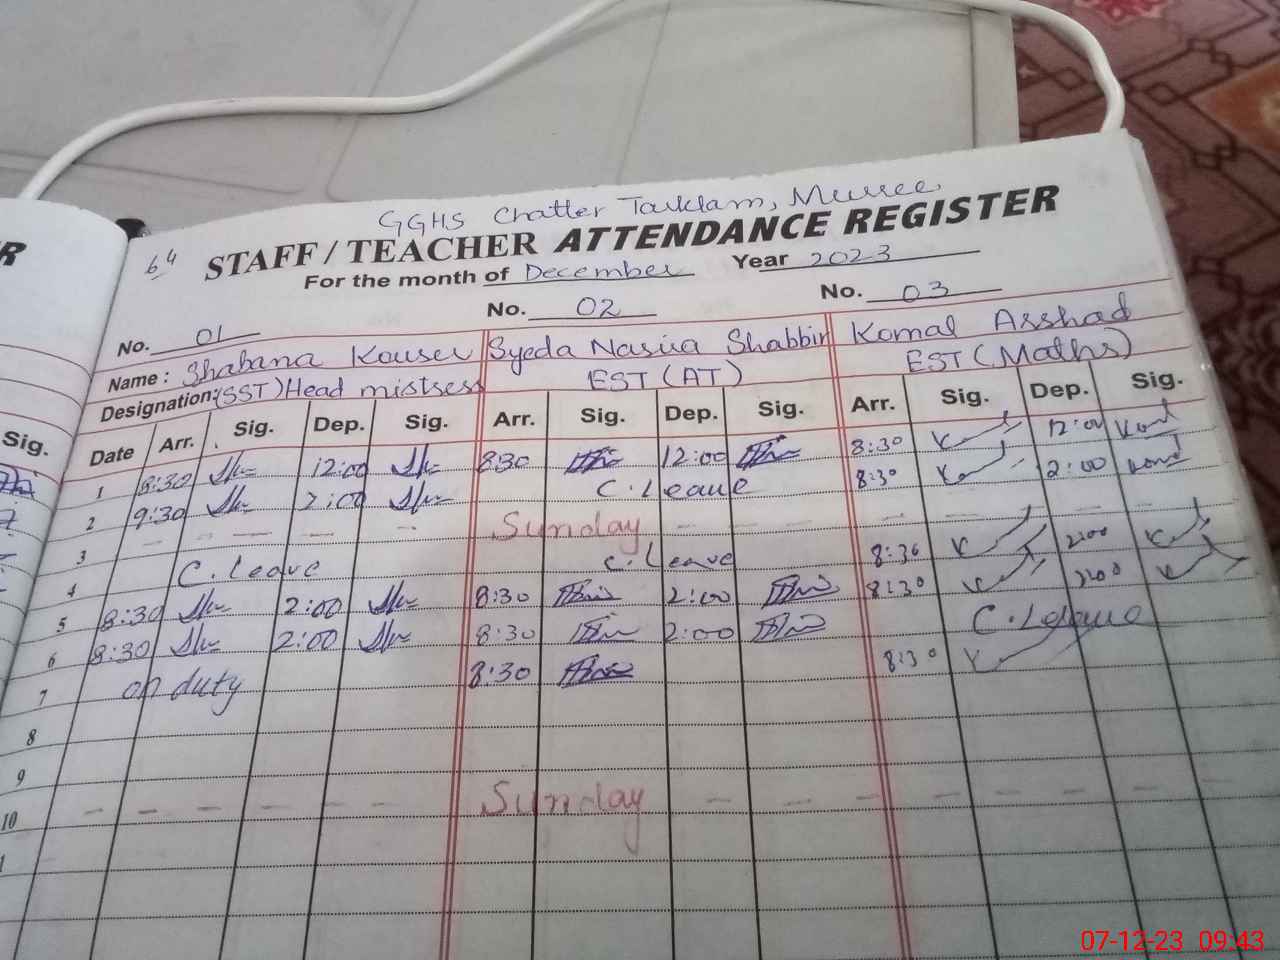 GGHS Chatter Tarklam, Murree
64 STAFF/TEACHER ATTENDANCE REGISTER
For the month of December Year 2023
No. 01 No. 02 No. 03
Name: Shabana Kouser Syeda Nasira Shabbir Komal Arshad
Designation: (SST) Head mistsess EST (AT) EST (Maths)
Sig. Date Arr. Sig. Dep. Sig. Arr. Sig. Dep. Sig. Arr. Sig. Dep. Sig.
1 8:30 12:00 8:30 12:00 8:30 12:00 Komal
2 9:30 2:00 C.Leave 8:30 2:00 Komal
3 Sunday
4 C.Leave C.Leave 8:30 2:00
5 8:30 2:00 8:30 2:00 8:30 2:00
6 8:30 2:00 8:30 2:00 C.Leave
7 on duty 8:30 8:30
8
9
10 Sunday
07-12-23 09:43